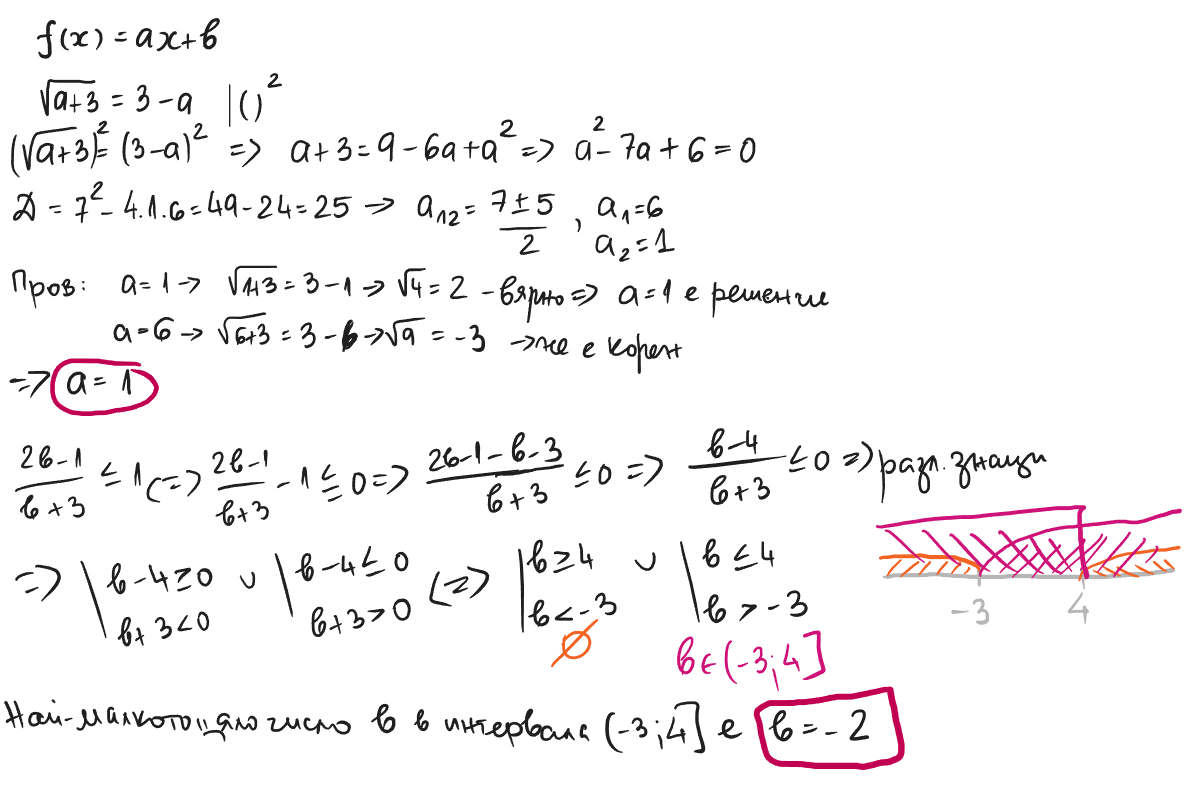 f(x) = ax+b
√(a+3) = 3-a |( )²
(√(a+3))² = (3-a)² => a+3 = 9-6a+a² => a²-7a+6=0
D = 7²-4.1.6=49-24=25 → a₁₂ = (7±5)/2, a₁=6
a₂=1
Пров: a=1 → √(1+3) = 3-1 → √4 = 2 - вярно => a=1 е решение
a=6 → √(6+3) = 3-6 → √9 = -3 → не е корен
=> a=1
(2b-1)/(b+3) ≤ 1 <=> (2b-1)/(b+3) - 1 ≤ 0 => (2b-1-b-3)/(b+3) ≤ 0 => (b-4)/(b+3) ≤ 0 => разл. знаци
=> | b-4≥0 ∪ | b-4≤0 <=> | b≥4 ∪ | b≤4
b+3<0 b+3>0 b<-3 b>-3
-3 4
∅ b∈(-3;4]
Най-малкото цяло число b в интервала (-3;4] е b=-2